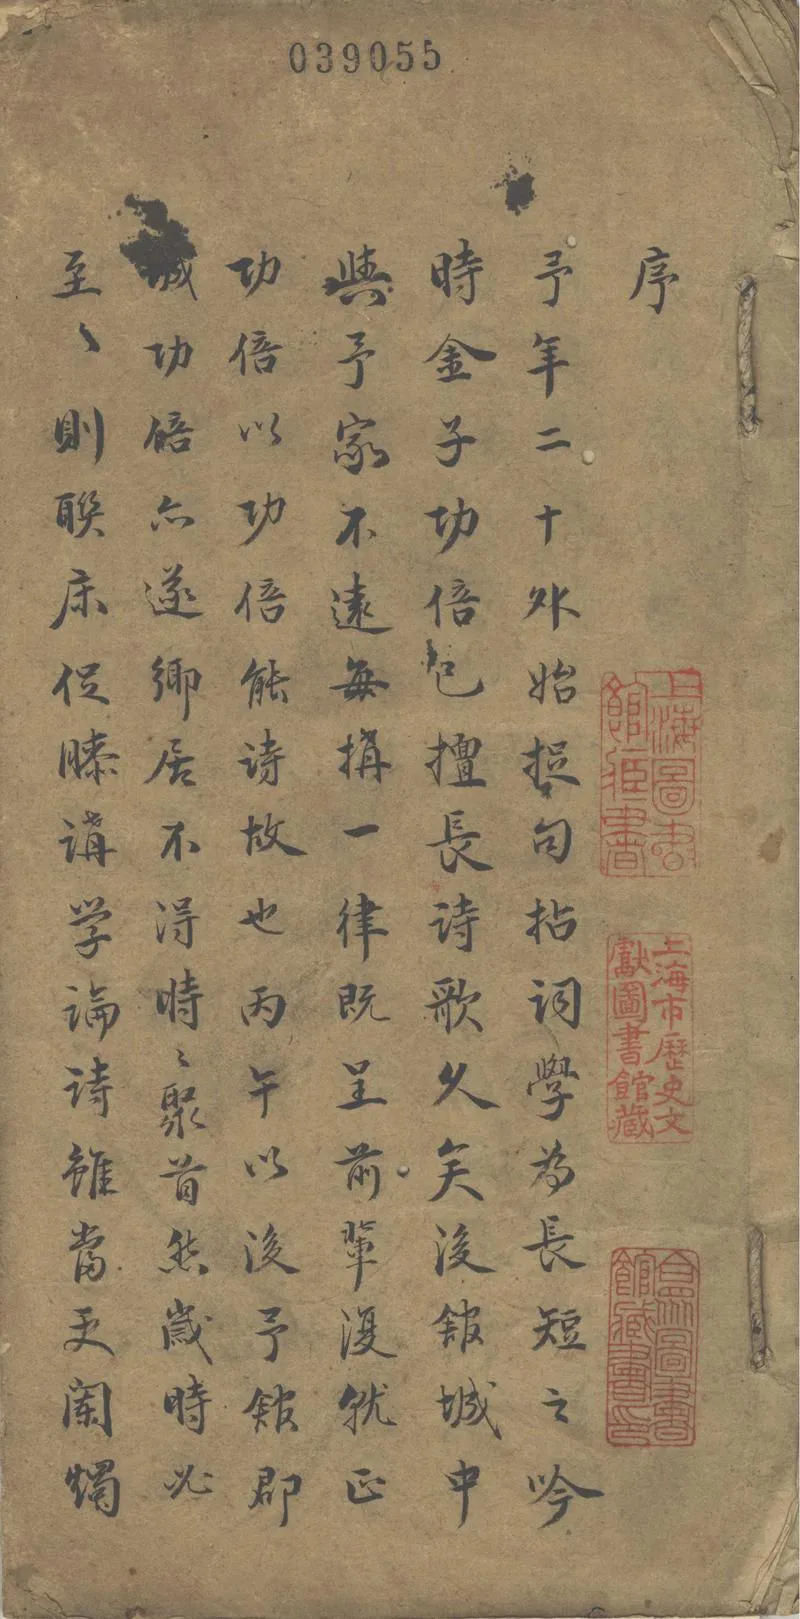 039055
序
予年二十外始捉句拈词學為長短之吟
時金子功倍已擅長诗歌久矣後館城中
與予家不遠每搆一律既呈前輩復就正
功倍以功倍能诗故也丙午以後予館郡
城功倍亦遂鄉居不得時〻聚首然歲時必
至〻則聯床促膝講学論诗雖當更闌燭
上海圖書館藏書
上海市歷史文獻圖書館藏
合眾圖書館藏書印